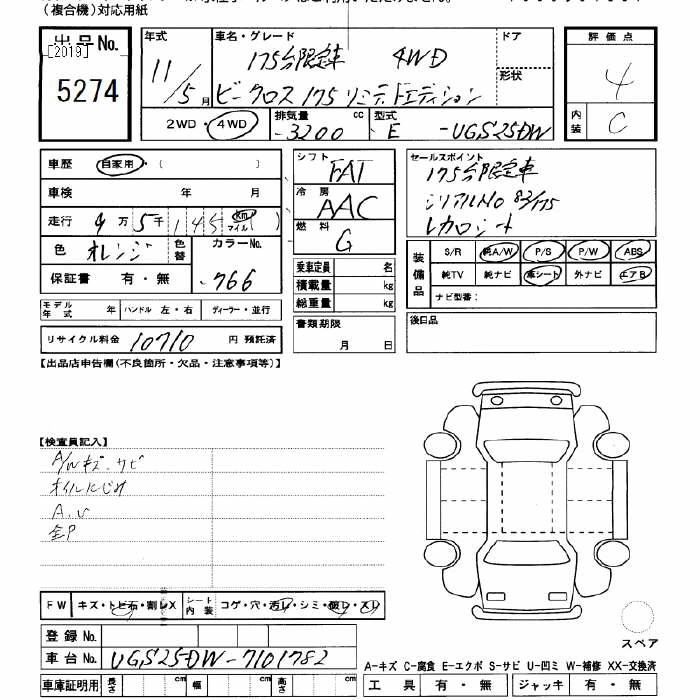 (複合機)対応用紙
出品No.
[2019]
5274
年式
11/5月
車名・グレード
175台限定車 4WD
ビークロス175リミテドエディション
ドア
形状
評価点
4
内装
C
2WD・4WD
排気量 cc
3200
型式
E -UGS25DW
車歴 自家用・( )
車検 年 月
走行 9万5千145 km マイル( )
色 オレンジ 色替 カラーNo.
保証書 有・無 766
モデル年式 年 ハンドル 左・右 ディーラー・並行
リサイクル料金 10710 円 預託済
シフト FAT
冷房 AAC
燃料 G
乗車定員 名
積載量 kg
総重量 kg
書類期限
月 日
セールスポイント
175台限定車
シリアルNo 83/175
レカロシート
装備品
S/R 純A/W P/S P/W ABS
純TV 純ナビ 革シート 外ナビ エアB
ナビ型番:
後日品
【出品店申告欄(不良箇所・欠品・注意事項等)】
【検査員記入】
A/Wキズ、サビ
オイルにじみ
A.U
全P
FW キズ・トビ石・割レX シート内装 コゲ・穴・汚レ・シミ・破レ・スレ
登録No.
車台No. UGS25DW-7101782
車庫証明用 長さ cm 幅 cm 高さ cm
スペア
A-キズ C-腐食 E-エクボ S-サビ U-凹ミ W-補修 XX-交換済
工具 有・無 ジャッキ 有・無